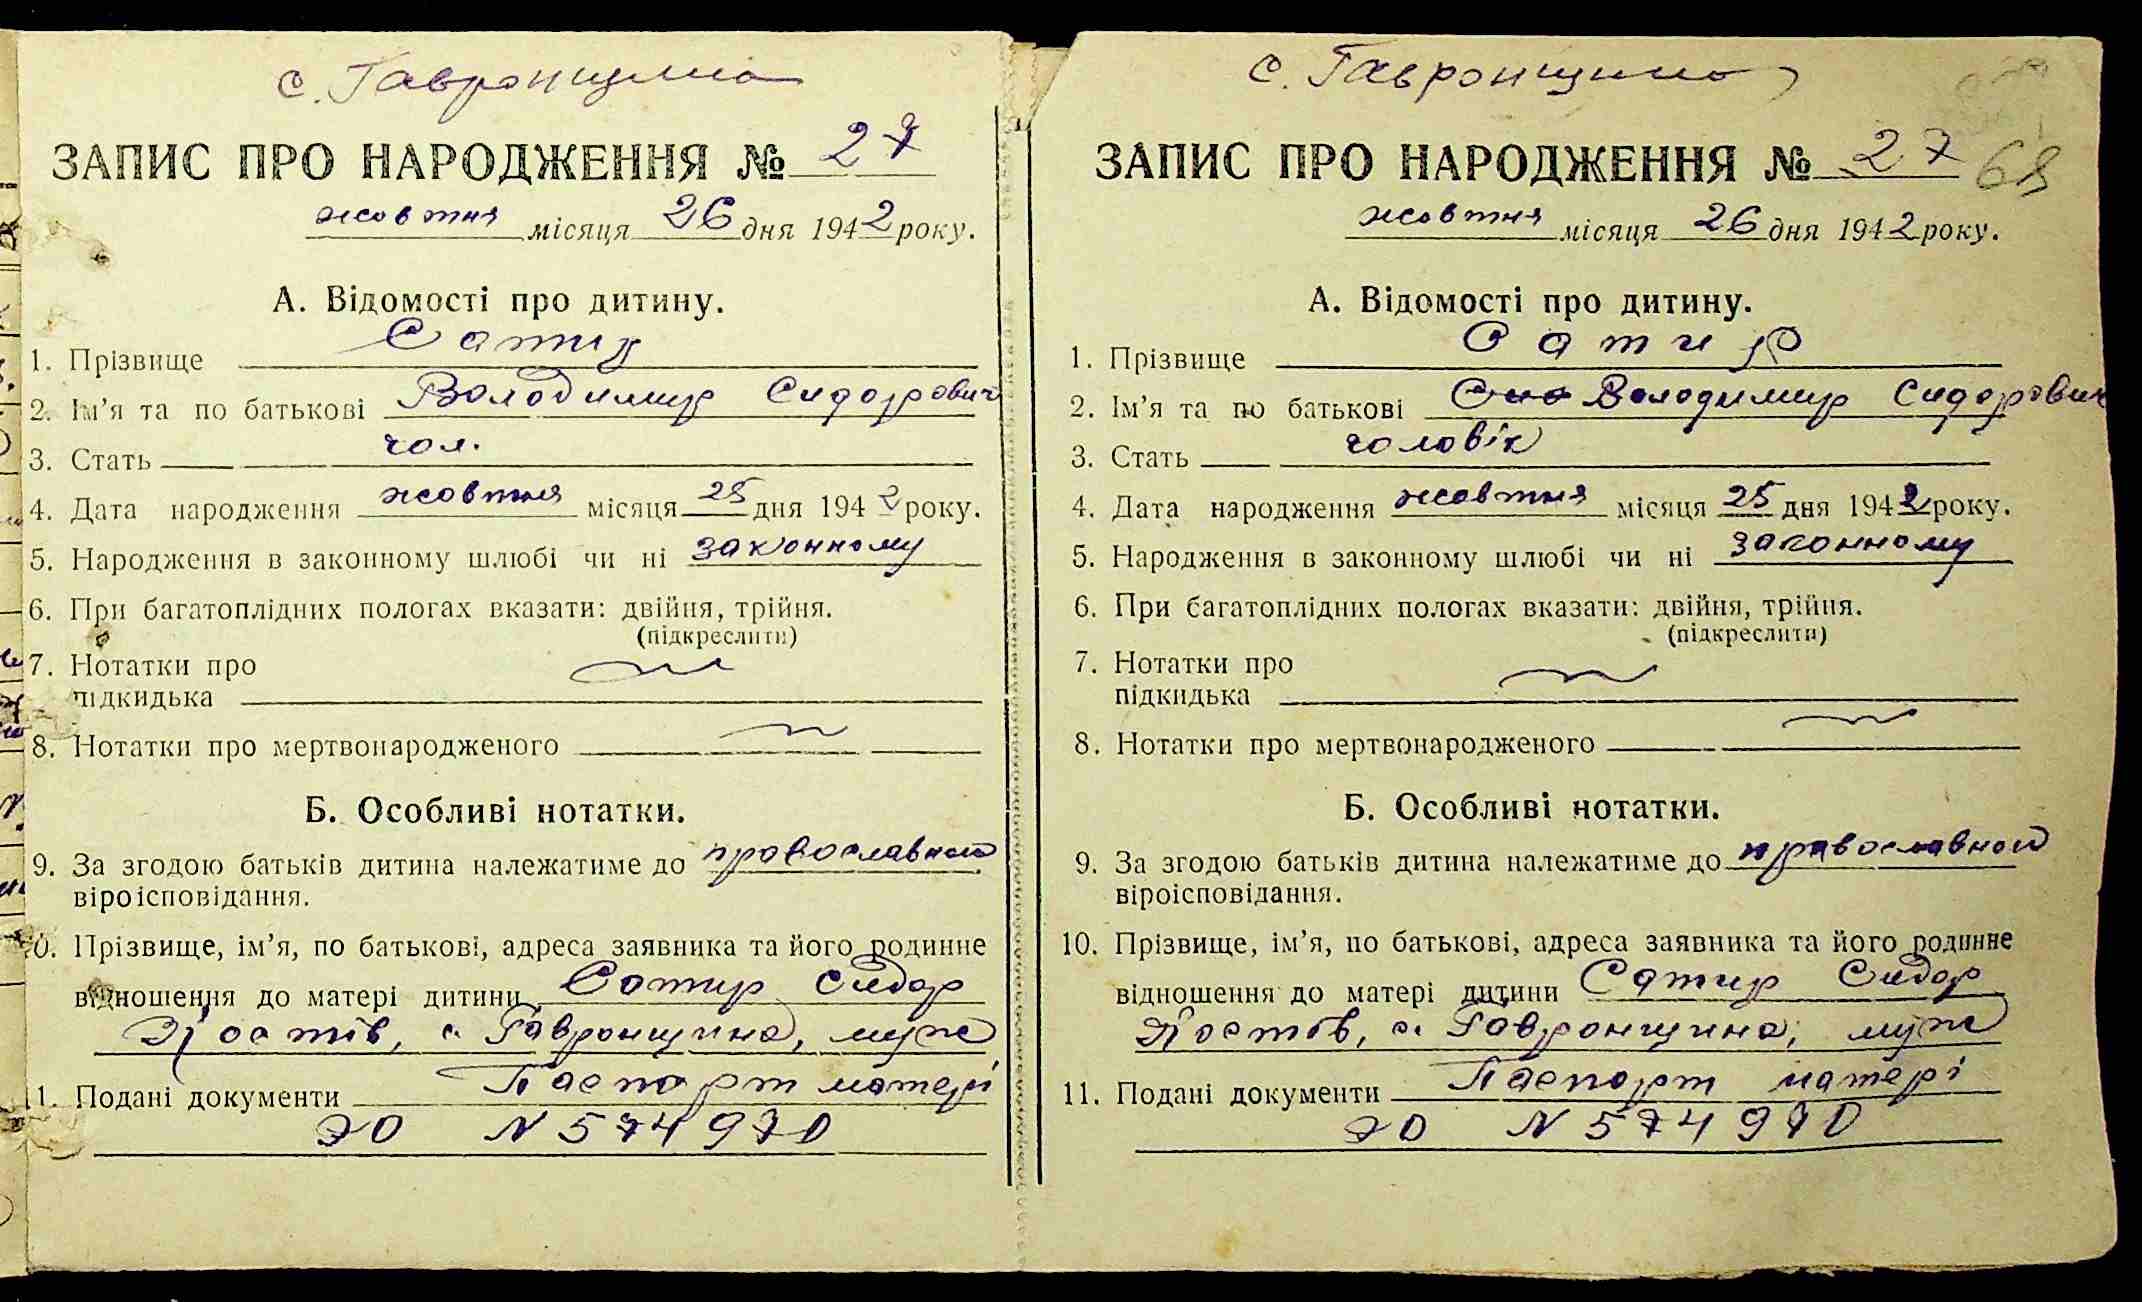 с. Гавронщина
ЗАПИС ПРО НАРОДЖЕННЯ № 27
жовтня місяця 26 дня 1942 року.
А. Відомості про дитину.
1. Прізвище Сатир
2. Ім'я та по батькові Володимир Сидорович
3. Стать чол.
4. Дата народження жовтня місяця 25 дня 1942 року.
5. Народження в законному шлюбі чи ні законному
6. При багатоплідних пологах вказати: двійня, трійня.
(підкреслити)
7. Нотатки про
підкидька
8. Нотатки про мертвонародженого
Б. Особливі нотатки.
9. За згодою батьків дитина належатиме до православного
віроісповідання.
0. Прізвище, ім'я, по батькові, адреса заявника та його родинне
відношення до матері дитини Сатир Сидор
с. Гавронщина, муж
11. Подані документи Паспорт матері
ЭО N 574970
с. Гавронщина
ЗАПИС ПРО НАРОДЖЕННЯ № 27 68
жовтня місяця 26 дня 1942 року.
А. Відомості про дитину.
1. Прізвище Сатир
2. Ім'я та по батькові Володимир Сидорович
3. Стать чоловік
4. Дата народження жовтня місяця 25 дня 1942 року.
5. Народження в законному шлюбі чи ні законному
6. При багатоплідних пологах вказати: двійня, трійня.
(підкреслити)
7. Нотатки про
підкидька
8. Нотатки про мертвонародженого
Б. Особливі нотатки.
9. За згодою батьків дитина належатиме до православного
віроісповідання.
10. Прізвище, ім'я, по батькові, адреса заявника та його родинне
відношення до матері дитини Сатир Сидор
с. Гавронщина, муж
11. Подані документи Паспорт матері
ЭО N 574970